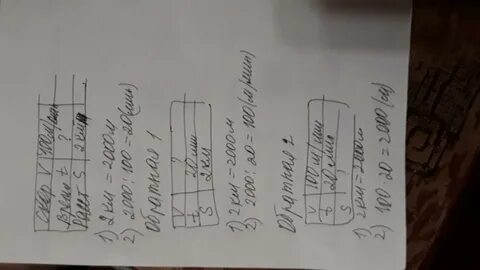 скор V 100 м/мин
время t ?
расст S 2 км
1) 2 км = 2000 м
2) 2000 : 100 = 20 (мин)
Обратная 1
V ?
t 20 мин
S 2 км
1) 2 км = 2000 м
2) 2000 : 20 = 100 (м/мин)
Обратная 2
V 100 м/мин
t 20 мин
S ?
1) 2 км = 2000 м
2) 100 · 20 = 2000 (м)